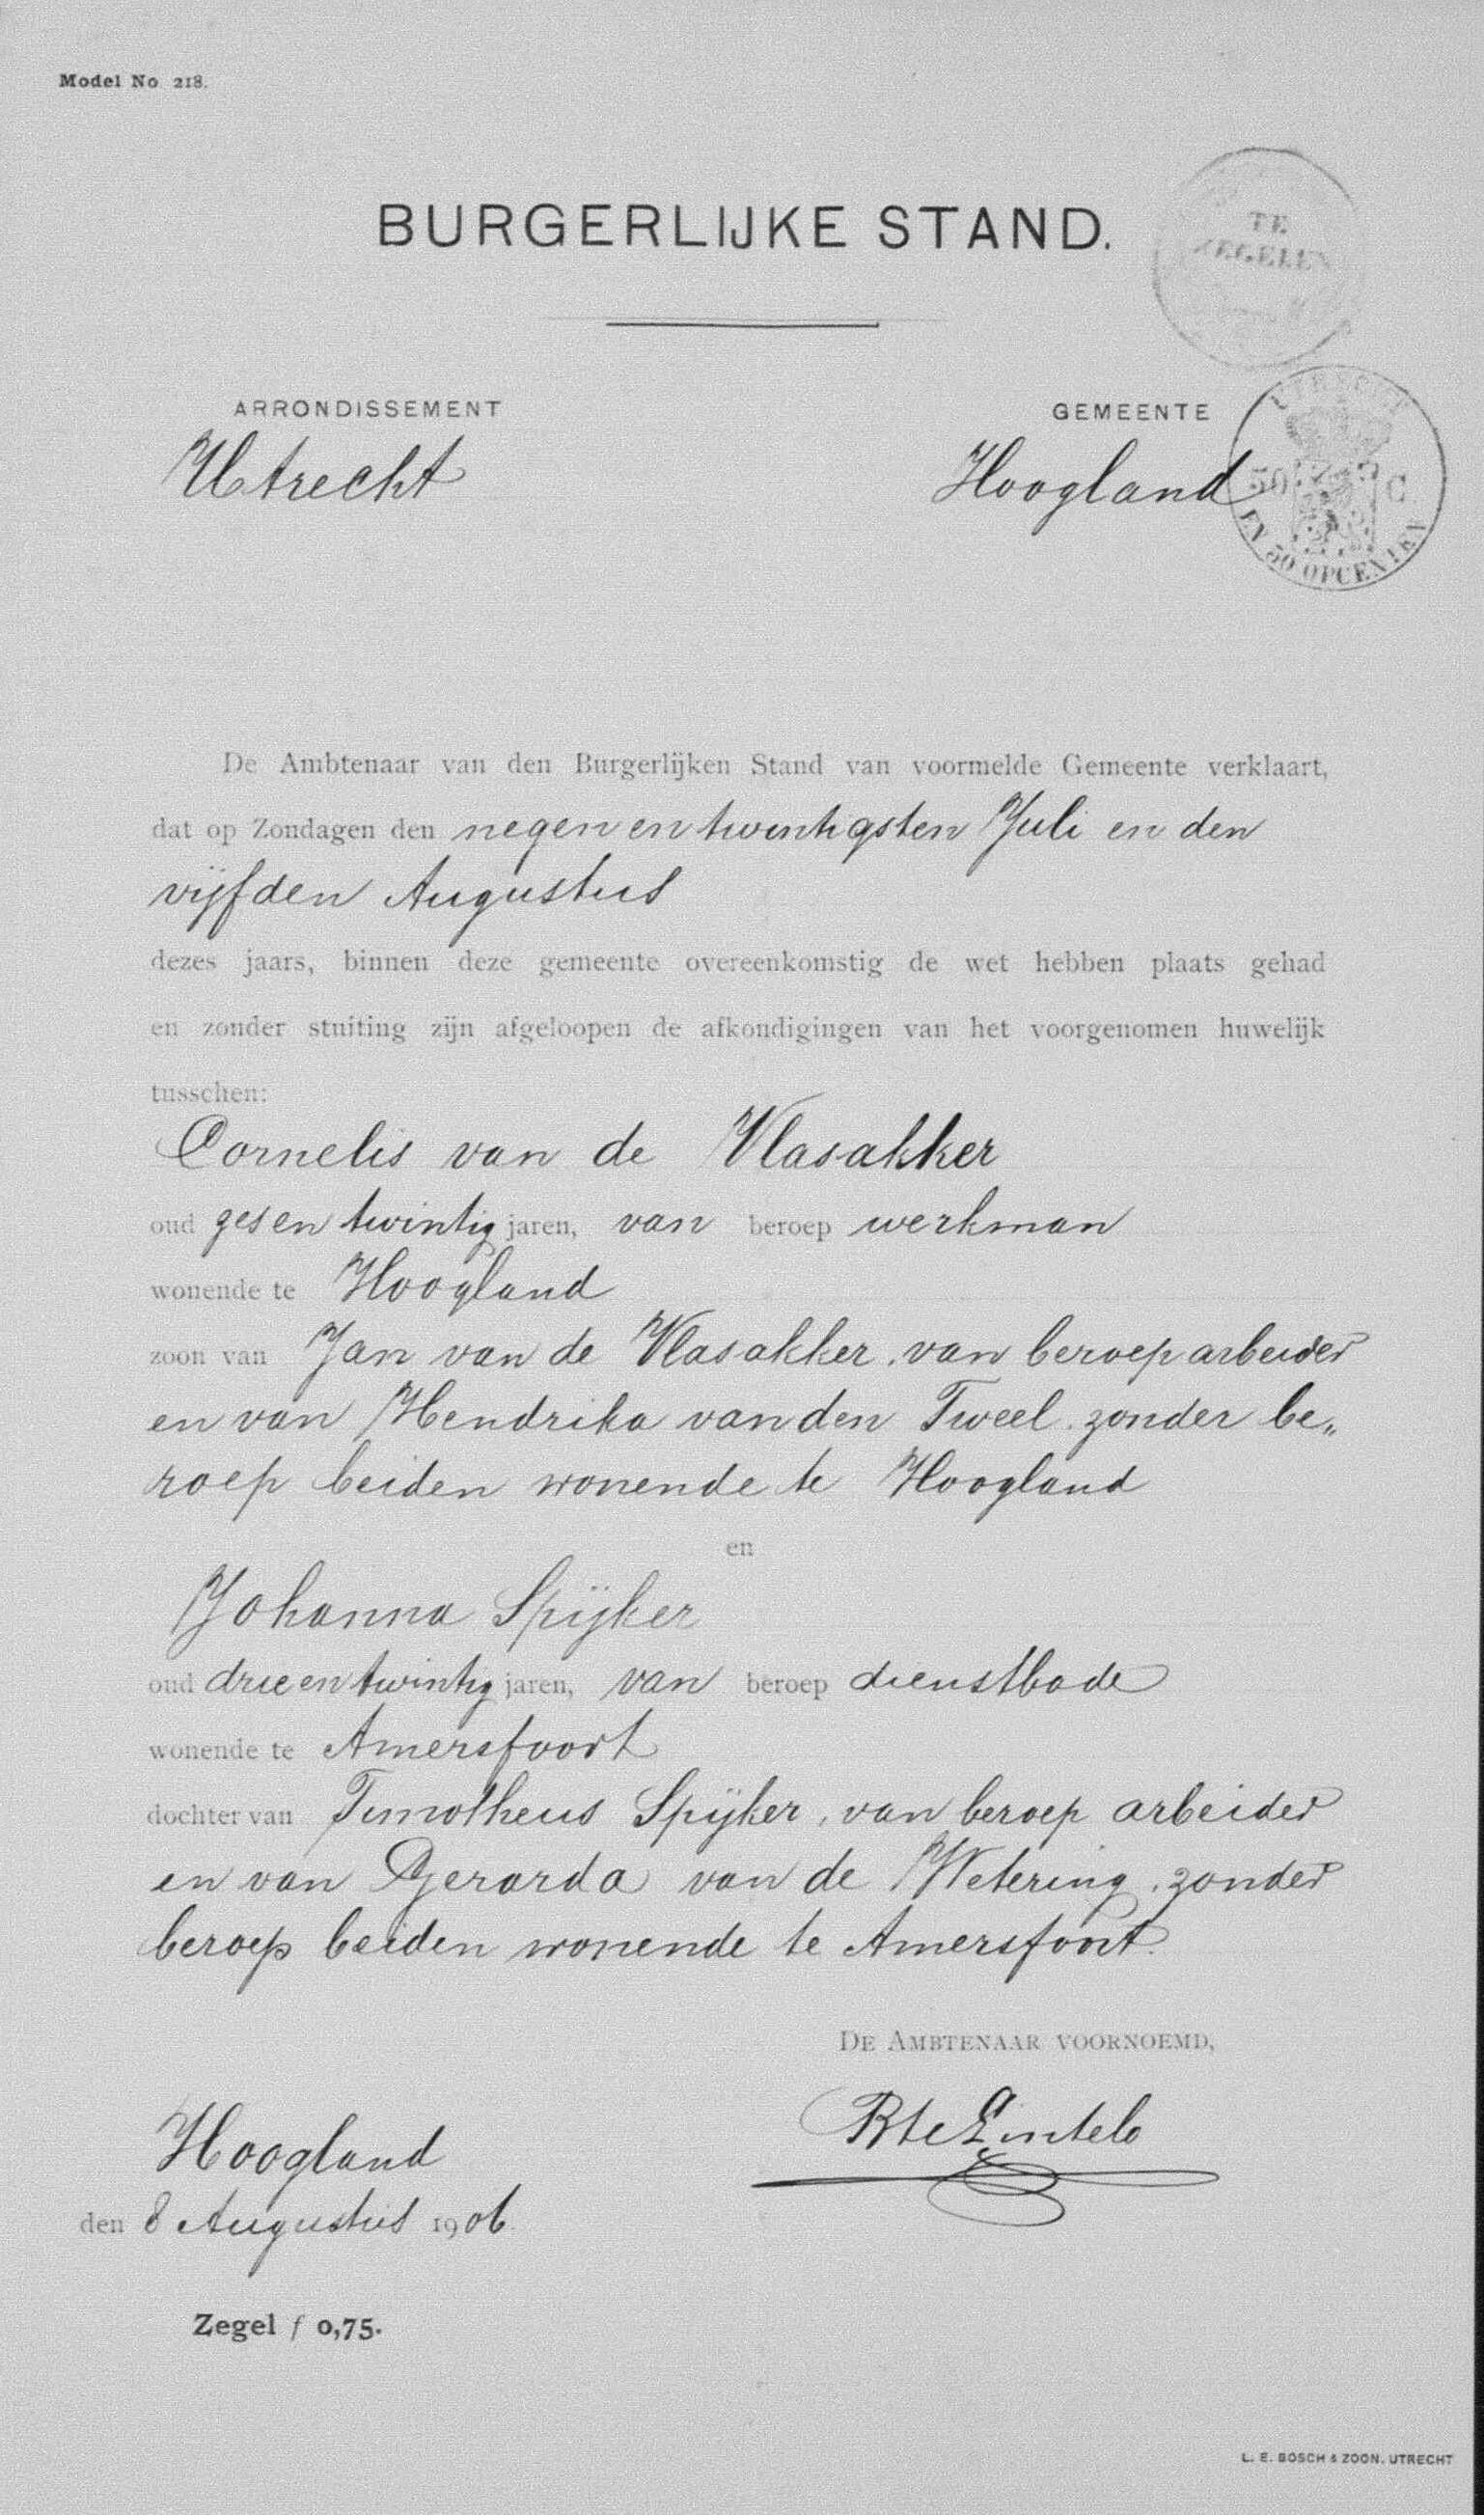 Model No 218.
TE
ZEGELEN
BURGERLIJKE STAND.
ARRONDISSEMENT
GEMEENTE
Utrecht
Hoogland
UTRECHT
50 C
EN 50 OPCENTEN
De Ambtenaar van den Burgerlijken Stand van voormelde Gemeente verklaart,
dat op Zondagen den negen en twintigsten Juli en den
vijfden Augustus
dezes jaars, binnen deze gemeente overeenkomstig de wet hebben plaats gehad
en zonder stuiting zijn afgeloopen de afkondigingen van het voorgenomen huwelijk
tusschen:
Cornelis van de Vlasakker
oud zes en twintig jaren, van beroep werkman
wonende te Hoogland
zoon van Jan van de Vlasakker, van beroep arbeider
en van Hendrika van den Tweel, zonder be„
roep beiden wonende te Hoogland
en
Johanna Spijker
oud drie en twintig jaren, van beroep dienstbode
wonende te Amersfoort
dochter van Timotheus Spijker, van beroep arbeider
en van Gerarda van de Wetering, zonder
beroep beiden wonende te Amersfoort.
DE AMBTENAAR VOORNOEMD,
Hoogland
den 8 Augustus 1906
Zegel f 0,75.
L. E. BOSCH & ZOON, UTRECHT